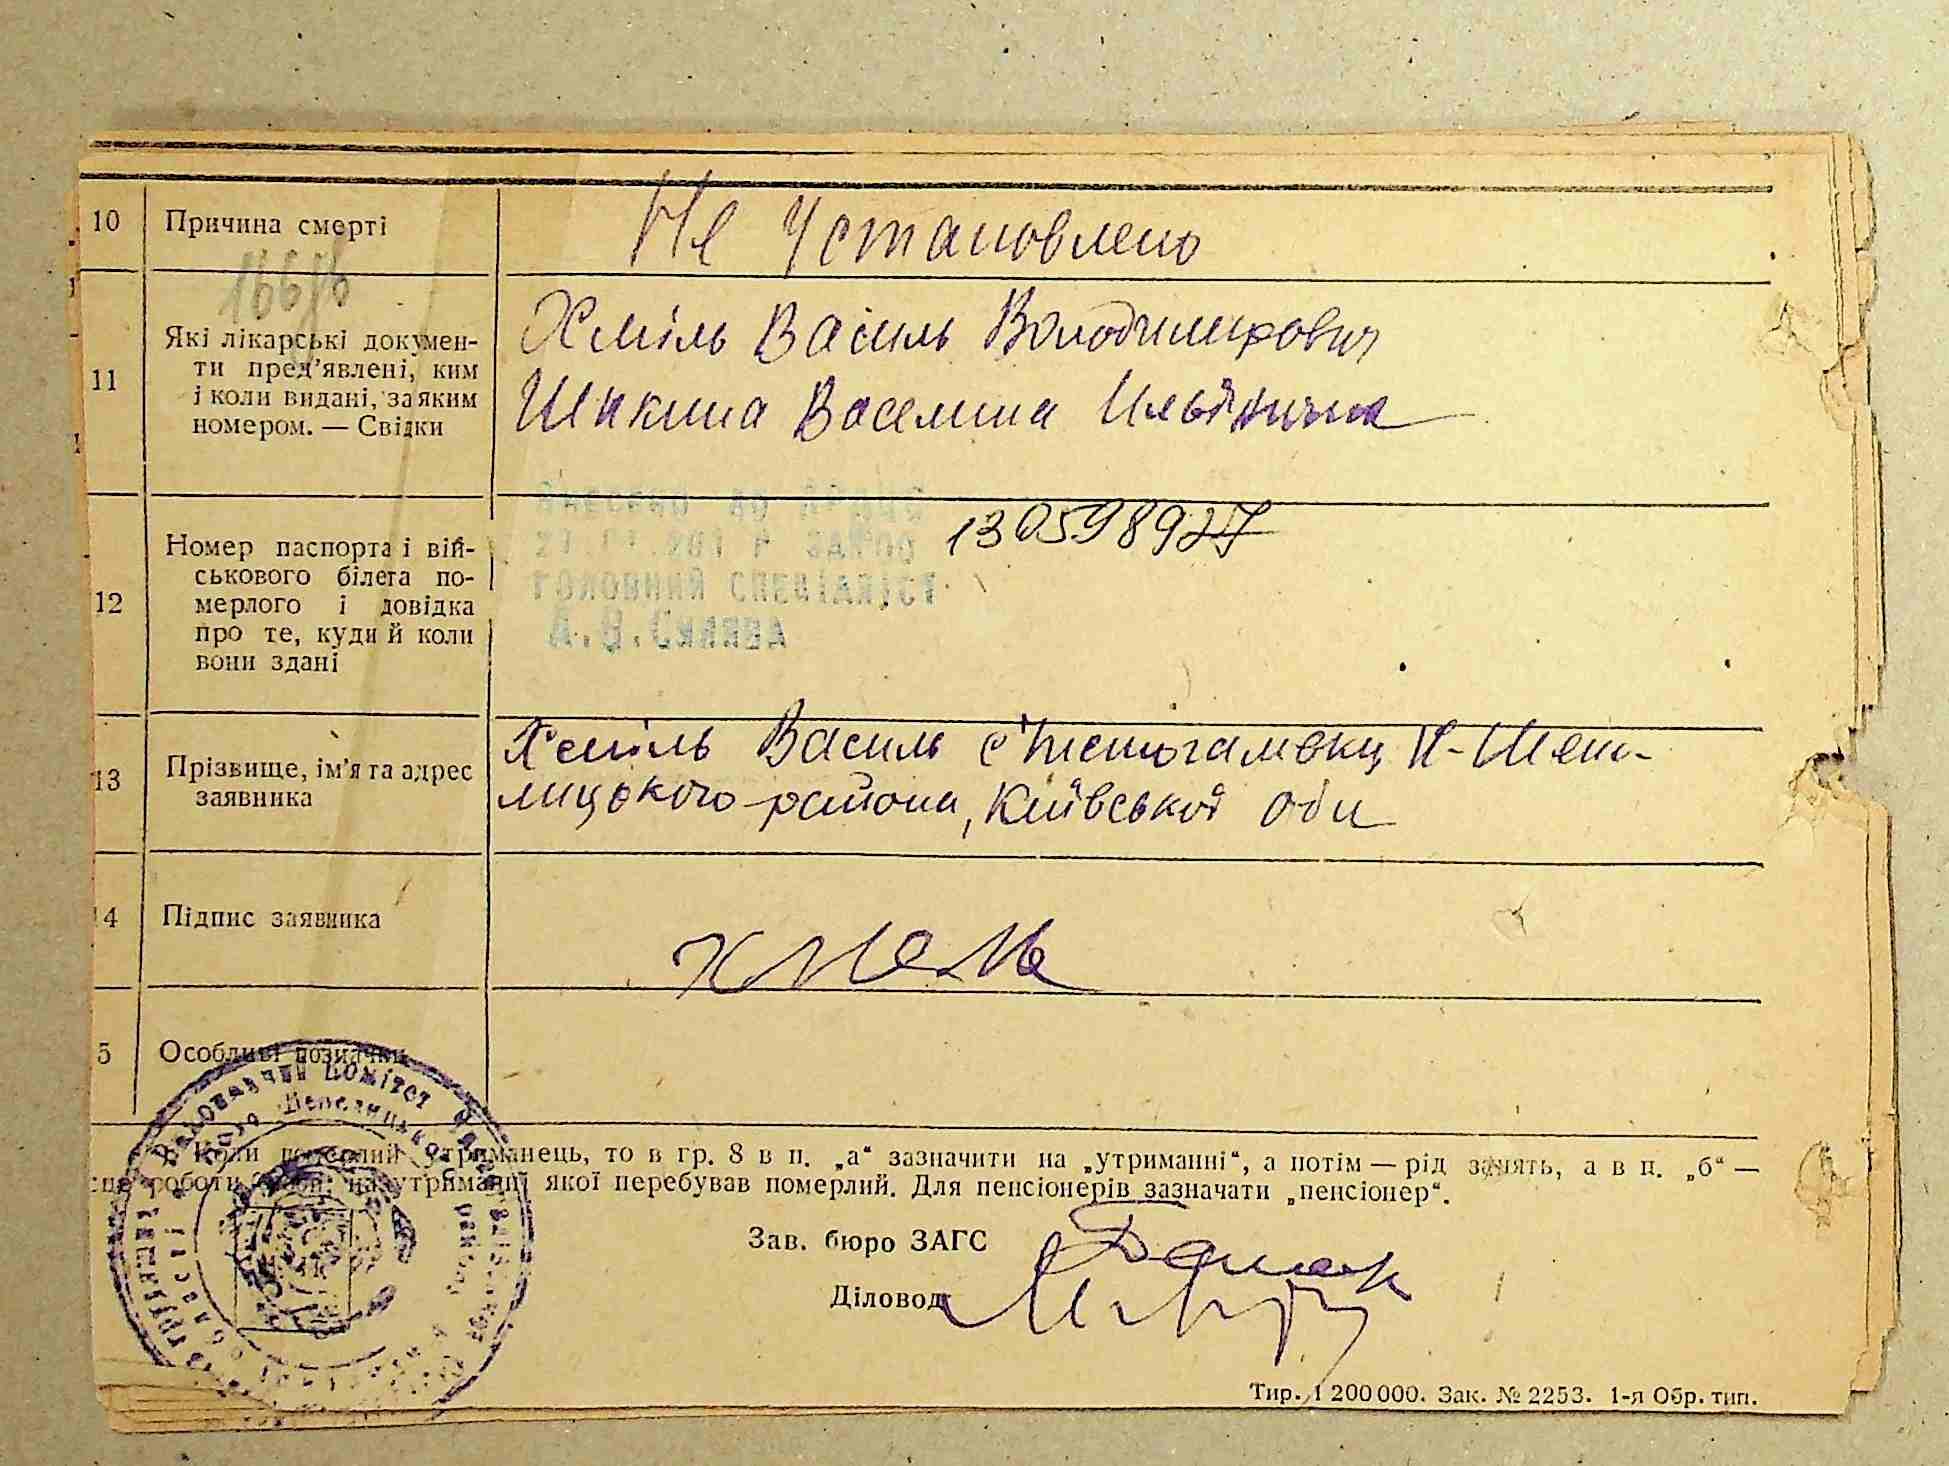 10 Причина смерті Не Установлено
11 Які лікарські докумен-
ти пред'явлені, ким
і коли видані, за яким
номером. — Свідки
Хміль Василь Володимирович
Шикина Васелина
12 Номер паспорта і вій-
ськового білета по-
мерлого і довідка
про те, куди й коли
вони здані
ВНЕСЕНО ДО
ГОЛОВНИЙ СПЕЦІАЛІСТ
13059892
13 Прізвище, ім'я та адрес
заявника
Хміль Василь
району, Київської обл
4 Підпис заявника Хмель
5 Особливі позначки
Виконавчий Комітет
Коли померлий утриманець, то в гр. 8 в п. „а“ зазначити на „утриманні“, а потім — рід занять, а в п. „б“ —
роботи на утриманні якої перебував померлий. Для пенсіонерів зазначати „пенсіонер“.
Зав. бюро ЗАГС
Діловод
Тир. 1 200 000. Зак. № 2253. 1-я Обр. тип.